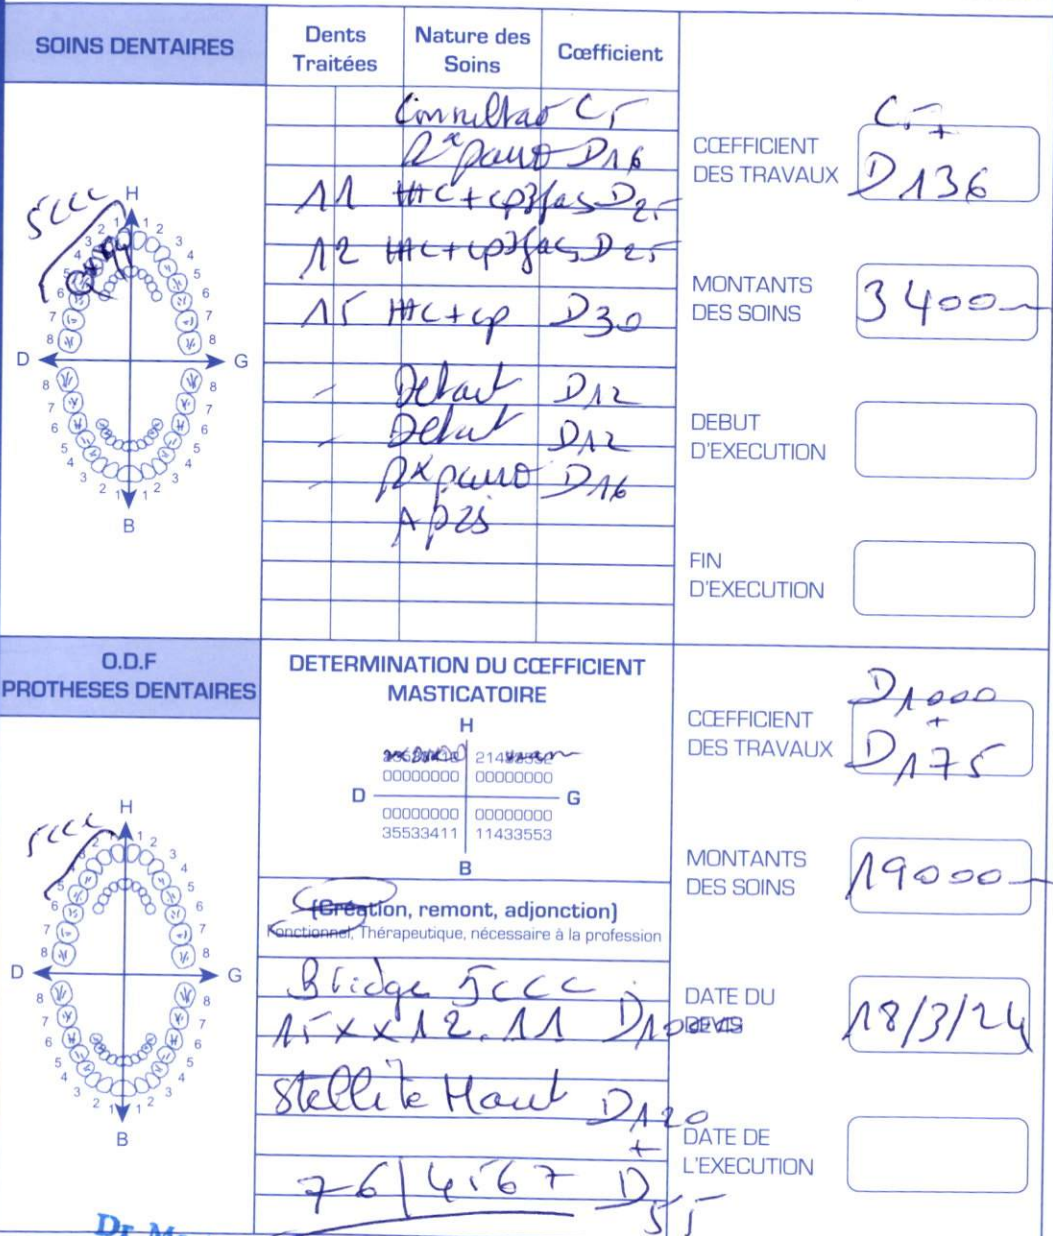 SOINS DENTAIRES
Dents Traitées
Nature des Soins
Cœfficient
Consultat C5
Rx pano D16
11 ttC+cp3fas D25
12 ttC+cp3fas D25
15 ttC+cp D30
- Detart D12
- Detart D12
- Rx pano D16
COEFFICIENT DES TRAVAUX
C5 +
D136
MONTANTS DES SOINS
3400
DEBUT D'EXECUTION
FIN D'EXECUTION
5CCC
H
D
G
B
O.D.F
PROTHESES DENTAIRES
DETERMINATION DU CŒFFICIENT MASTICATOIRE
H
00000000 00000000
D
G
00000000 00000000
35533411 11433553
B
(Création, remont, adjonction)
Fonctionnel, Thérapeutique, nécessaire à la profession
Bridge 5CCC
15 x x 12.11 D1000
Stellite Haut D120
+
76|4567 D55
CŒFFICIENT DES TRAVAUX
D1000
+
D175
MONTANTS DES SOINS
19000
DATE DU DEVIS
18/3/24
DATE DE L'EXECUTION
5CCC
H
D
G
B